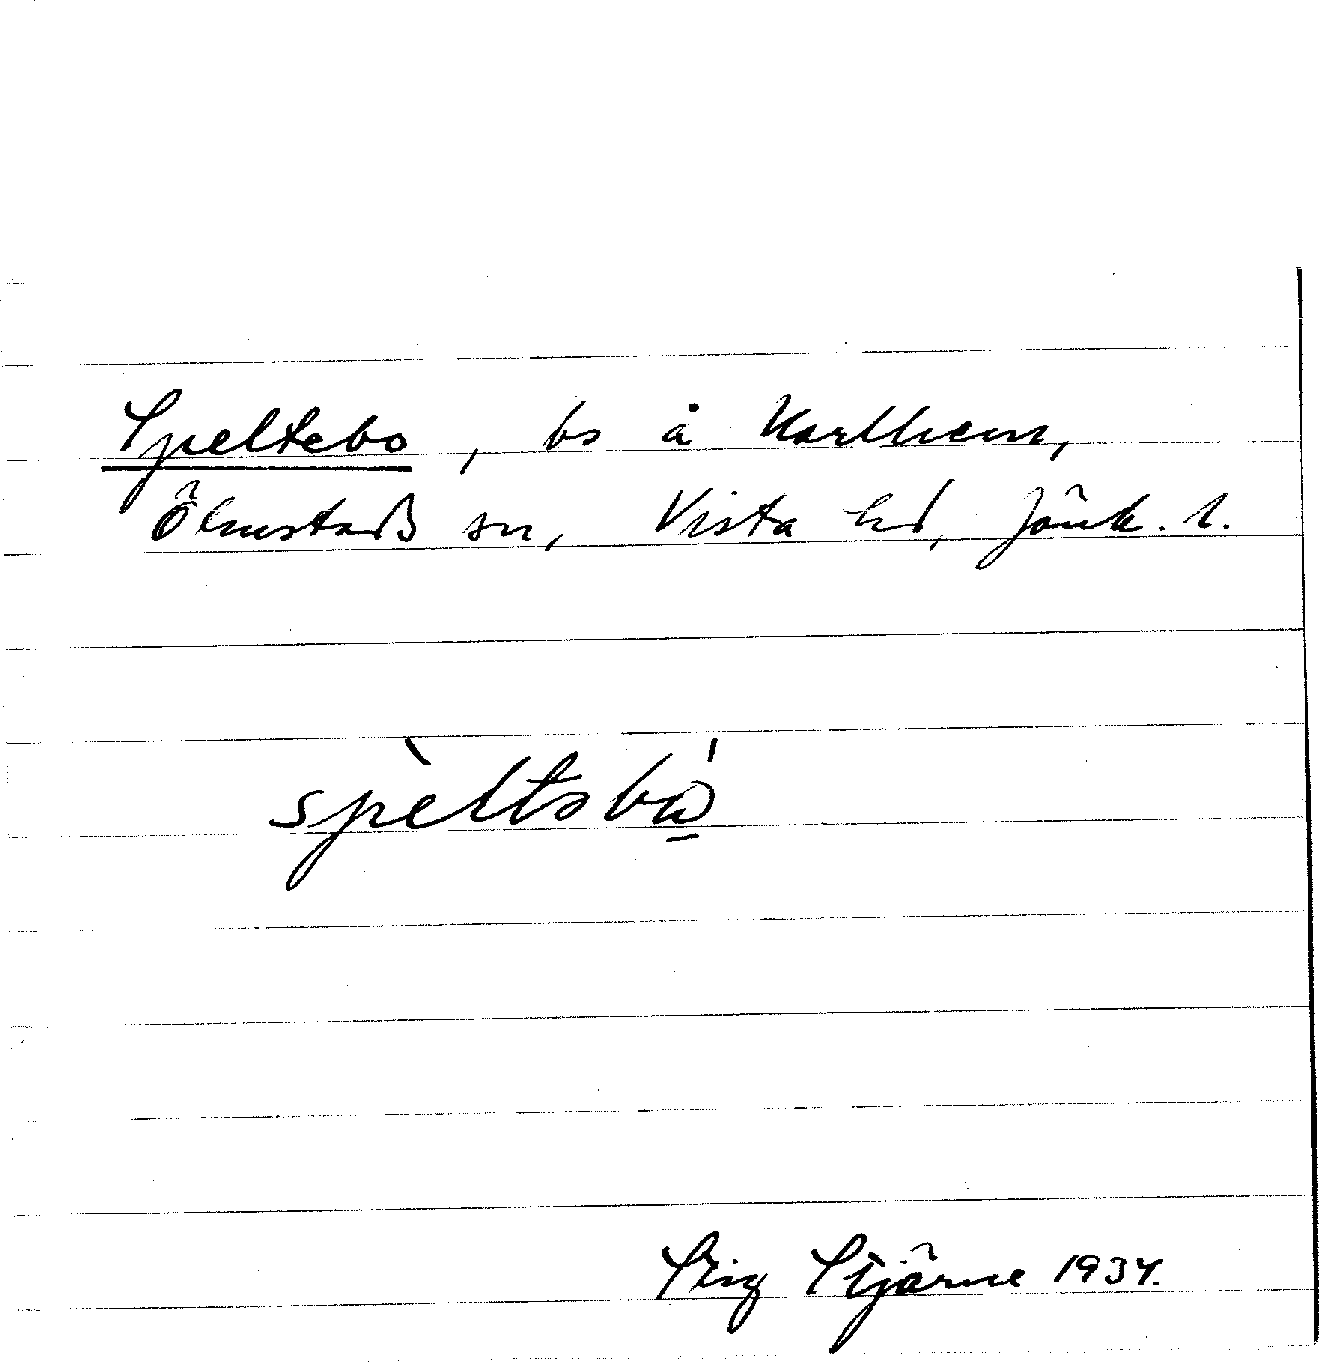 Speltebo, bs å Karlhem,
Ölmstads sn, Vista hd, Jönk. l.
spèltəbo̠
Stig Stjärne 1934.